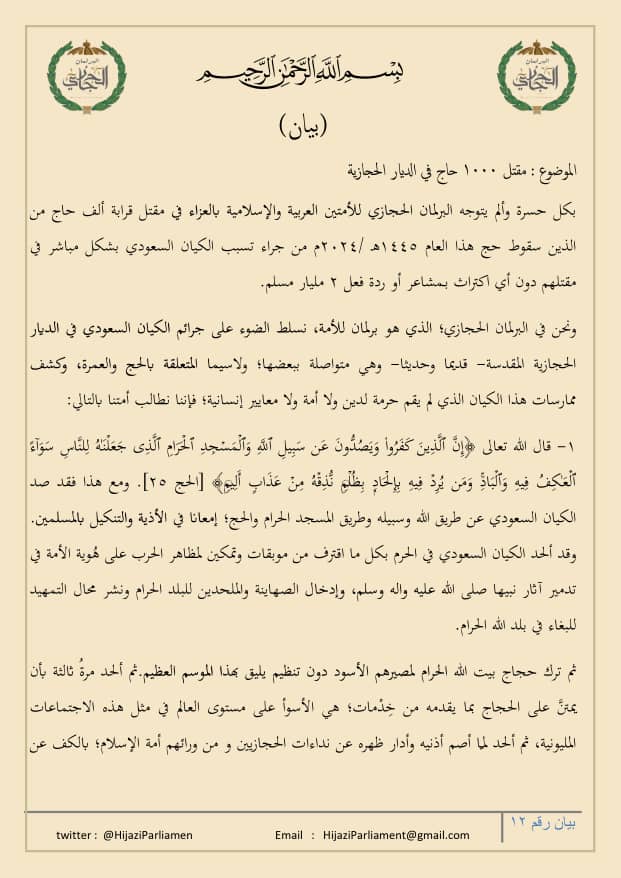 البرلمان
الحجازي
بِسْمِ ٱللَّهِ ٱلرَّحْمَٰنِ ٱلرَّحِيمِ
البرلمان
الحجازي
(بيان)
الموضوع : مقتل ١٠٠٠ حاج في الديار الحجازية
بكل حسرة وألم يتوجه البرلمان الحجازي للأمتين العربية والإسلامية بالعزاء في مقتل قرابة ألف حاج من
الذين سقطوا حج هذا العام ١٤٤٥هـ /٢٠٢٤م من جراء تسبب الكيان السعودي بشكل مباشر في
مقتلهم دون أي اكتراث بمشاعر أو ردة فعل ٢ مليار مسلم.
ونحن في البرلمان الحجازي؛ الذي هو برلمان للأمة، نسلط الضوء على جرائم الكيان السعودي في الديار
الحجازية المقدسة- قديما وحديثا- وهي متواصلة ببعضها؛ ولاسيما المتعلقة بالحج والعمرة، وكشف
ممارسات هذا الكيان الذي لم يقم حرمة لدين ولا أمة ولا معايير إنسانية؛ فإننا نطالب أمتنا بالتالي:
١- قال الله تعالى ﴿إِنَّ ٱلَّذِينَ كَفَرُواْ وَيَصُدُّونَ عَن سَبِيلِ ٱللَّهِ وَٱلْمَسْجِدِ ٱلْحَرَامِ ٱلَّذِى جَعَلْنَٰهُ لِلنَّاسِ سَوَآءً
ٱلْعَٰكِفُ فِيهِ وَٱلْبَادِۚ وَمَن يُرِدْ فِيهِ بِإِلْحَادٍۭ بِظُلْمٍ نُّذِقْهُ مِنْ عَذَابٍ أَلِيمٍ﴾ [الحج ٢٥]. ومع هذا فقد صد
الكيان السعودي عن طريق الله وسبيله وطريق المسجد الحرام والحج؛ إمعانا في الأذية والتنكيل بالمسلمين.
وقد ألحد الكيان السعودي في الحرم بكل ما اقترف من موبقات وتمكين لمظاهر الحرب على هُوية الأمة في
تدمير آثار نبيها صلى الله عليه واله وسلم، وإدخال الصهاينة والملحدين للبلد الحرام ونشر محال التمهيد
للبغاء في بلد الله الحرام.
ثم ترك حجاج بيت الله الحرام لمصيرهم الأسود دون تنظيم يليق بهذا الموسم العظيم.ثم ألحد مرةُ ثالثة بأن
يمتنَّ على الحجاج بما يقدمه من خِدْمات؛ هي الأسوأ على مستوى العالم في مثل هذه الاجتماعات
المليونية، ثم ألحد لما أصم أذنيه وأدار ظهره عن نداءات الحجازيين و من ورائهم أمة الإسلام؛ بالكف عن
بيان رقم ١٢
twitter : @HijaziParliamen Email : HijaziParliament@gmail.com